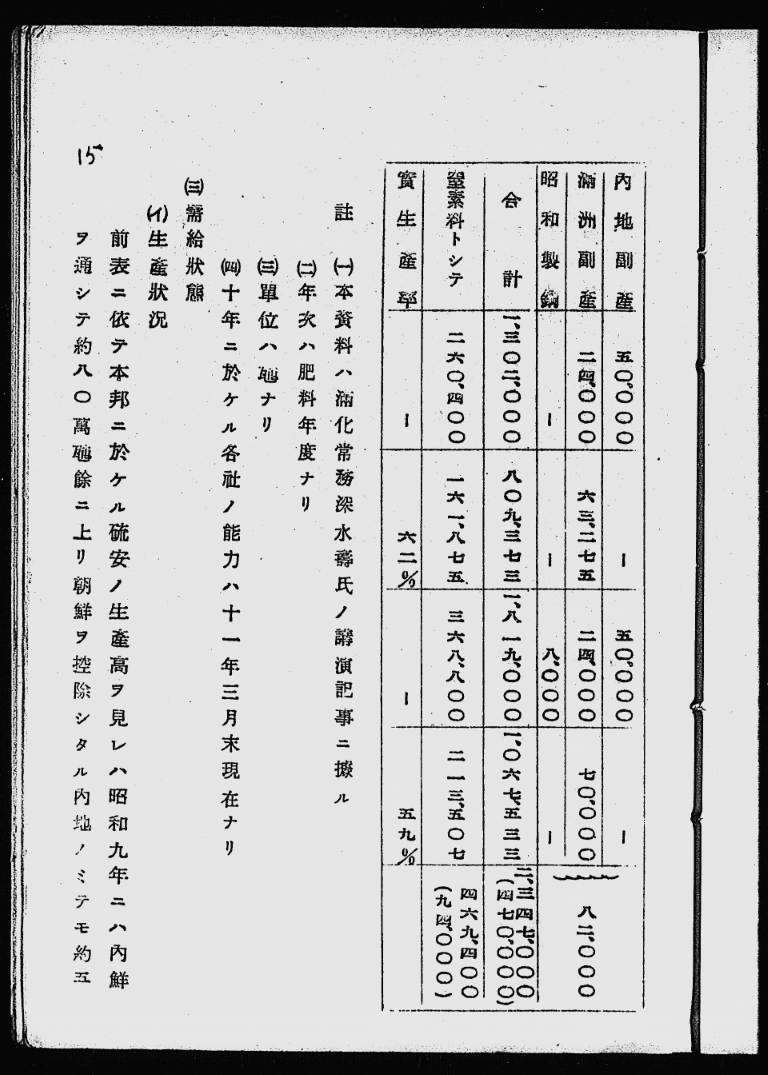 內地副產 五〇、〇〇〇 ー 五〇、〇〇〇 ー
滿洲副產 二四、〇〇〇 六三、二七五 二四、〇〇〇 七〇、〇〇〇 八二、〇〇〇
昭和製鋼 ー ー 八、〇〇〇 ー
合計 一、三〇二、〇〇〇 八〇九、三七三 一、八一九、〇〇〇 一、〇六七、五三三 二、三四七、〇〇〇 (四七〇、〇〇〇)
窒素料トシテ 二六〇、四〇〇 一六一、八七五 三六八、八〇〇 二一三、五〇七 四六九、四〇〇 (九四、〇〇〇)
實生產率 ー 六二% ー 五九%
註 ㈠本資料ハ滿化常務深水壽氏ノ講演記事ニ據ル
㈡年次ハ肥料年度ナリ
㈢單位ハ瓲ナリ
㈣十年ニ於ケル各社ノ能力ハ十一年三月末現在ナリ
㈢需給狀態
(イ)生產狀況
前表ニ依テ本邦ニ於ケル硫安ノ生產高ヲ見レハ昭和九年ニハ內鮮
ヲ通シテ約八〇萬瓲餘ニ上リ朝鮮ヲ控除シタル內地ノミテモ約五
15